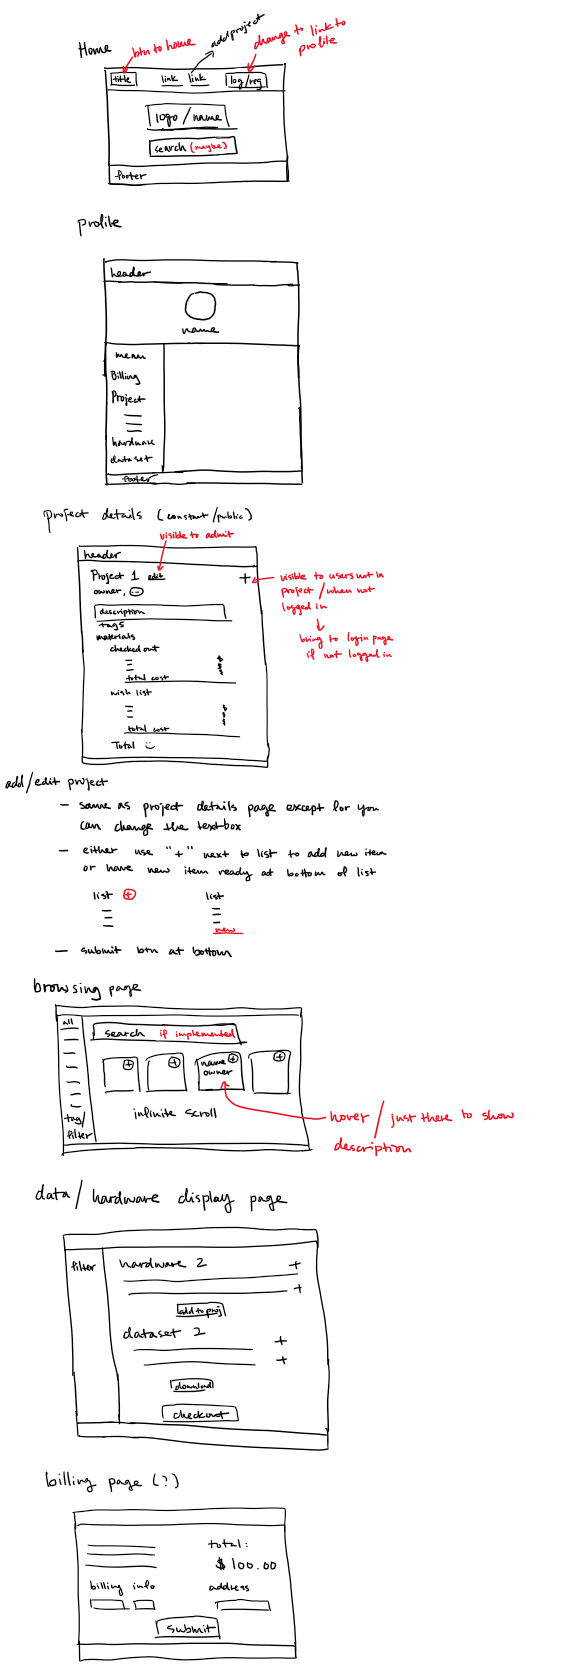 Home
btn to home
add project
change to link to
profile
title
link
link
log/reg
logo / name
search (maybe)
footer
profile
header
name
menu
Billing
Project
hardware
dataset
footer
project details (constant/public)
visible to admit
header
Project 1 edit
+
owner,
visible to users not in
project / when not
logged in
bring to login page
if not logged in
description
tags
materials
checked out
total cost
wish list
total cost
Total
add/edit project
– same as project details page except for you
can change the textbox
– either use "+" next to list to add new item
or have new item ready at bottom of list
list +
list
new
– submit btn at bottom
browsing page
all
search if implemented
+
+
name +
owner
+
infinite scroll
tag/
filter
hover / just there to show
description
data/hardware display page
filter
hardware 2
+
+
add to proj
dataset 2
+
+
download
checkout
billing page (?)
total:
$100.00
billing info
address
submit